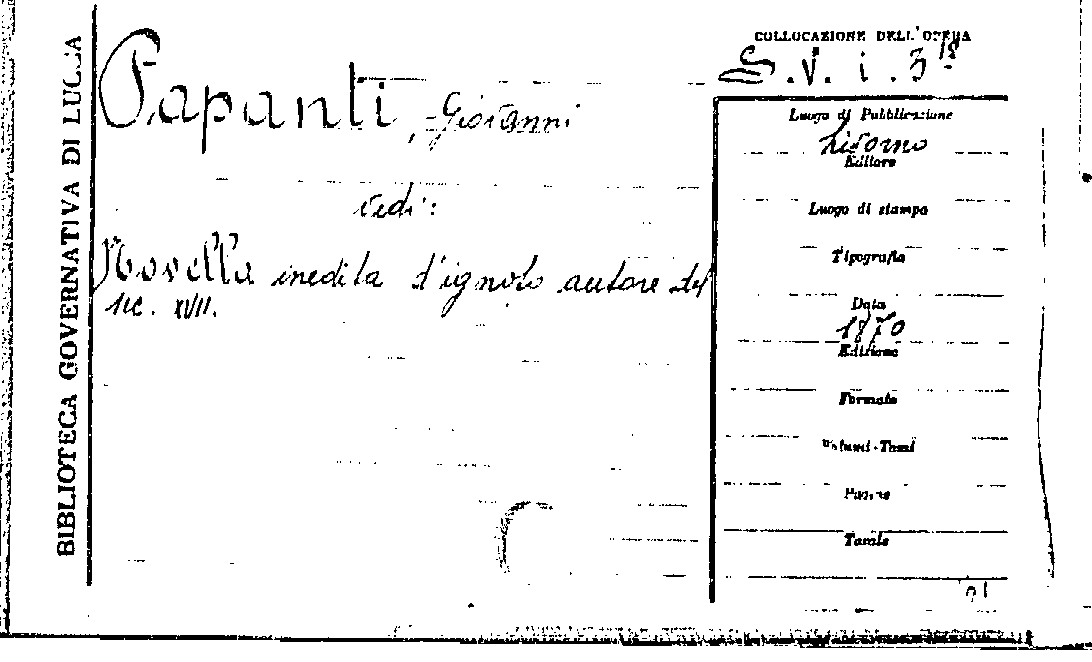 BIBLIOTECA GOVERNATIVA DI LUCCA
COLLOCAZIONE DELL'OPERA
S.V. i. 3 18
Papanti, Giovanni
vedi:
Novella inedita d'ignoto autore del
sec. XVII.
Luogo di Pubblicazione
Livorno
Editore
Luogo di stampa
Tipografia
Data
1870
Edizione
Formato
Volumi-Tomi
Pagine
Tavole